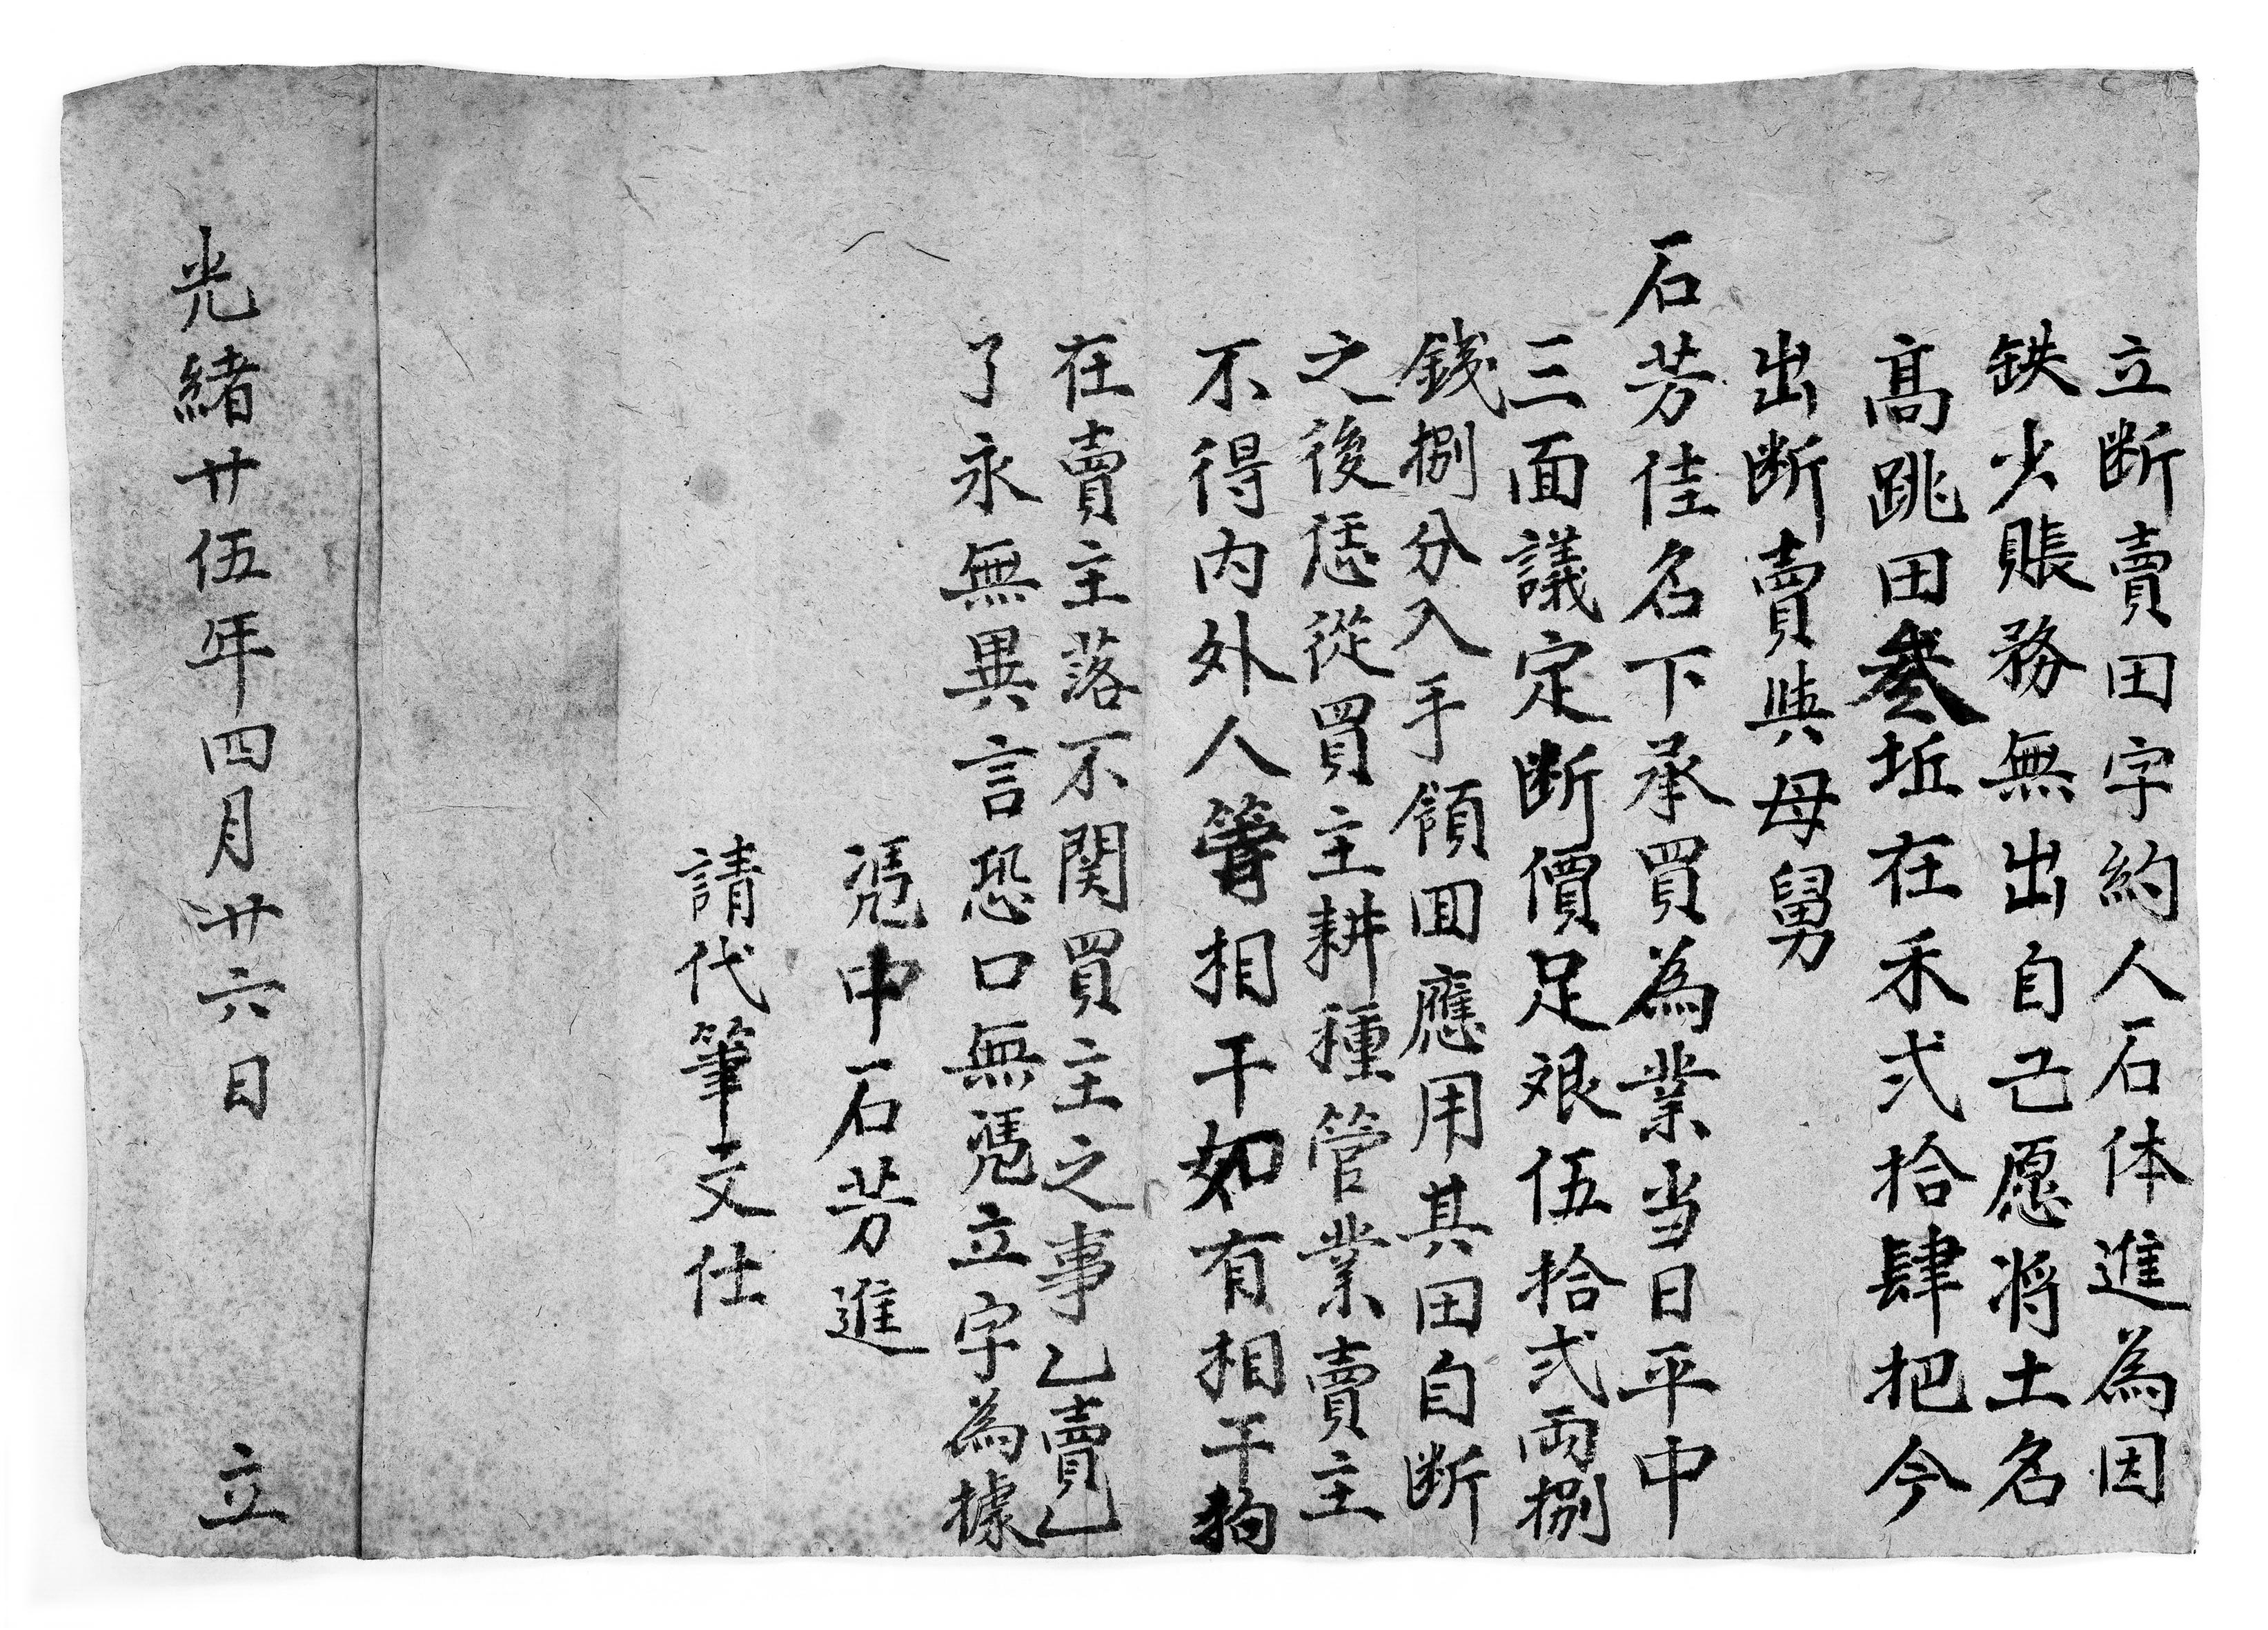 立断賣田字約人石体進為因
缺少賬務無出自己愿将土名
髙跳田叁坵在禾弍拾肆把今
出断賣與母舅
石芳佳名下承買為業当日平中
三面議定断價足艮伍拾弍両捌
錢捌分入手領囬應用其田自断
之後恁從買主耕種管業賣主
不得内外人管相干如有相干拘
在賣主落不関買主之事乙賣乙
了永無異言恐口無凭立字為據
凭中石芳進
請代筆文仕
光緒廿伍年四月廿六日　立